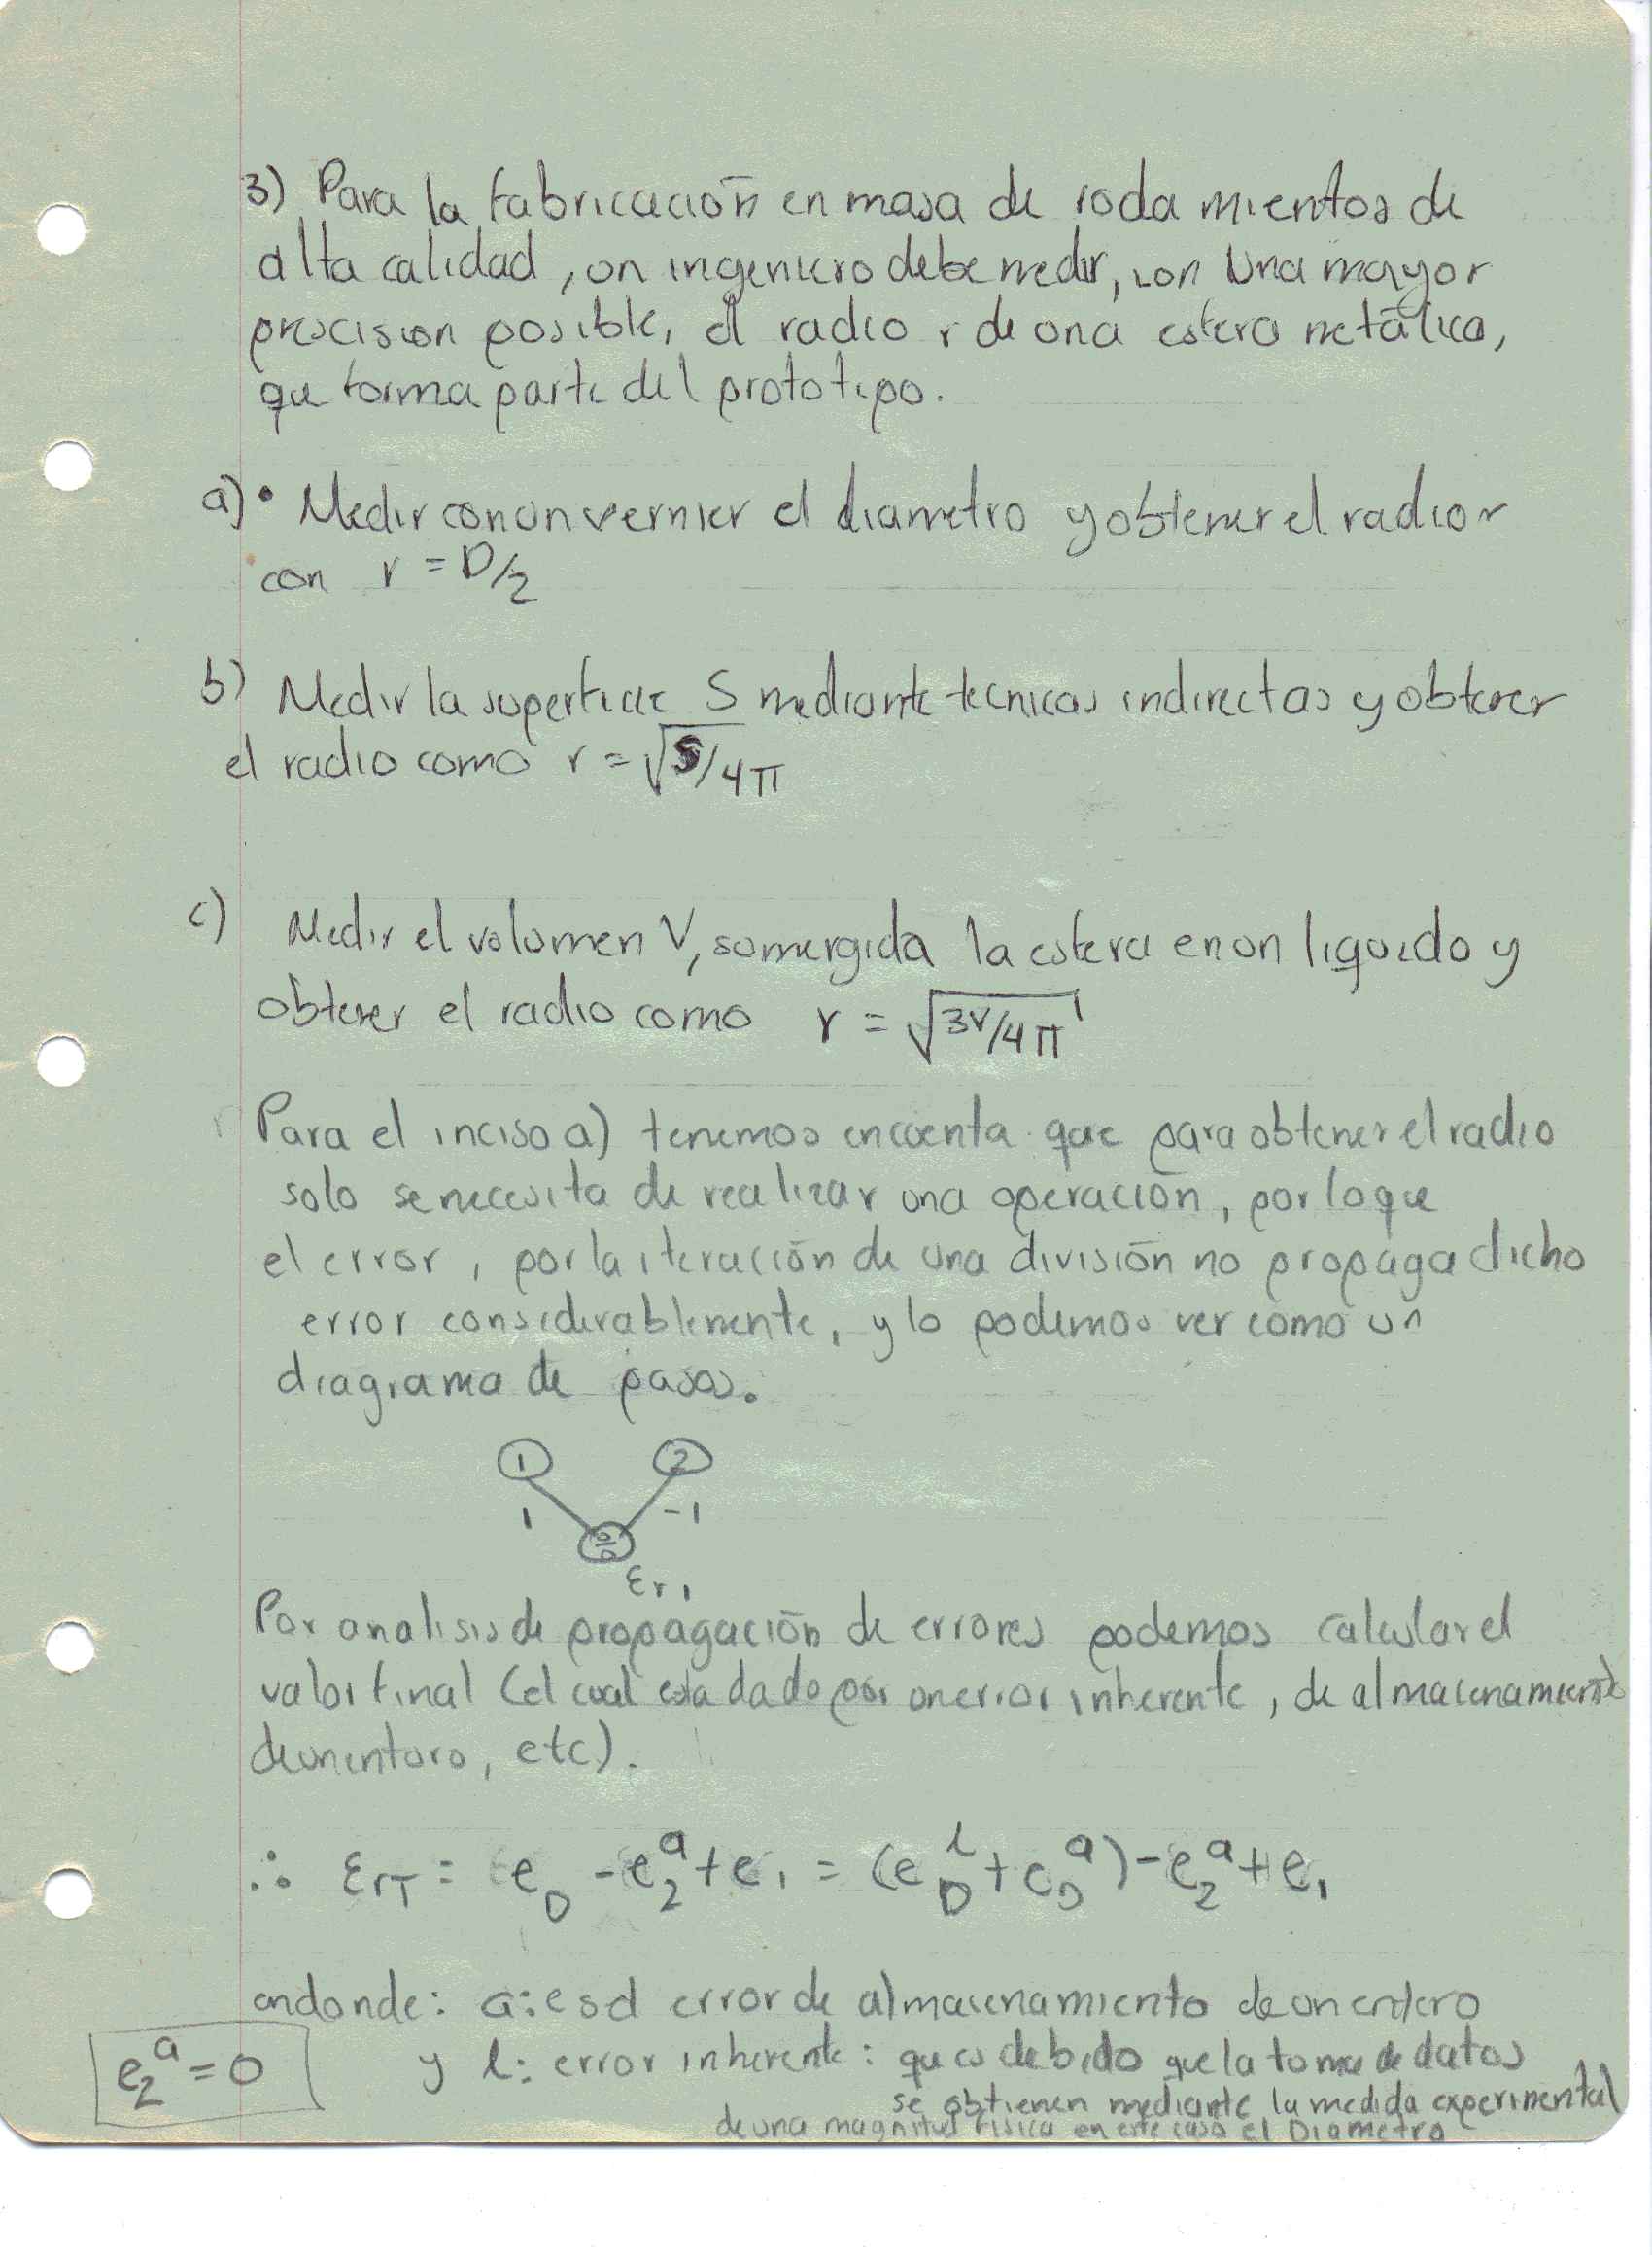 3) Para la fabricación en masa de rodamientos de
alta calidad, un ingeniero debe medir, con una mayor
precision posible, el radio r de una esfera metálica,
que forma parte del prototipo.
a) • Medir con un vernier el diametro y obtener el radio r
con r = D/2
b) Medir la superficie S mediante tecnicas indirectas y obtener
el radio como r = √S/4π
c) Medir el volumen V, sumergida la esfera en un liquido y
obtener el radio como r = √3V/4π
Para el inciso a) tenemos en cuenta que para obtener el radio
solo se necesita de realizar una operación, por lo que
el error, por la iteración de una división no propaga dicho
error considerablemente, y lo podemos ver como un
diagrama de pasos.
1 2
1 -1
÷
εr₁
Por analisis de propagación de errores podemos calcular el
valor final (el cual esta dado por un error inherente, de almacenamiento
de un entero, etc).
∴ εrT = e_D - e₂ᵃ + e₁ = (e_Dⁱ + e_Dᵃ) - e₂ᵃ + e₁
en donde: a: es el error de almacenamiento de un entero
e₂ᵃ = 0 y i: error inherente: que es debido que la toma de datos
se obtienen mediante la medida experimental
de una magnitud fisica en este caso el Diametro